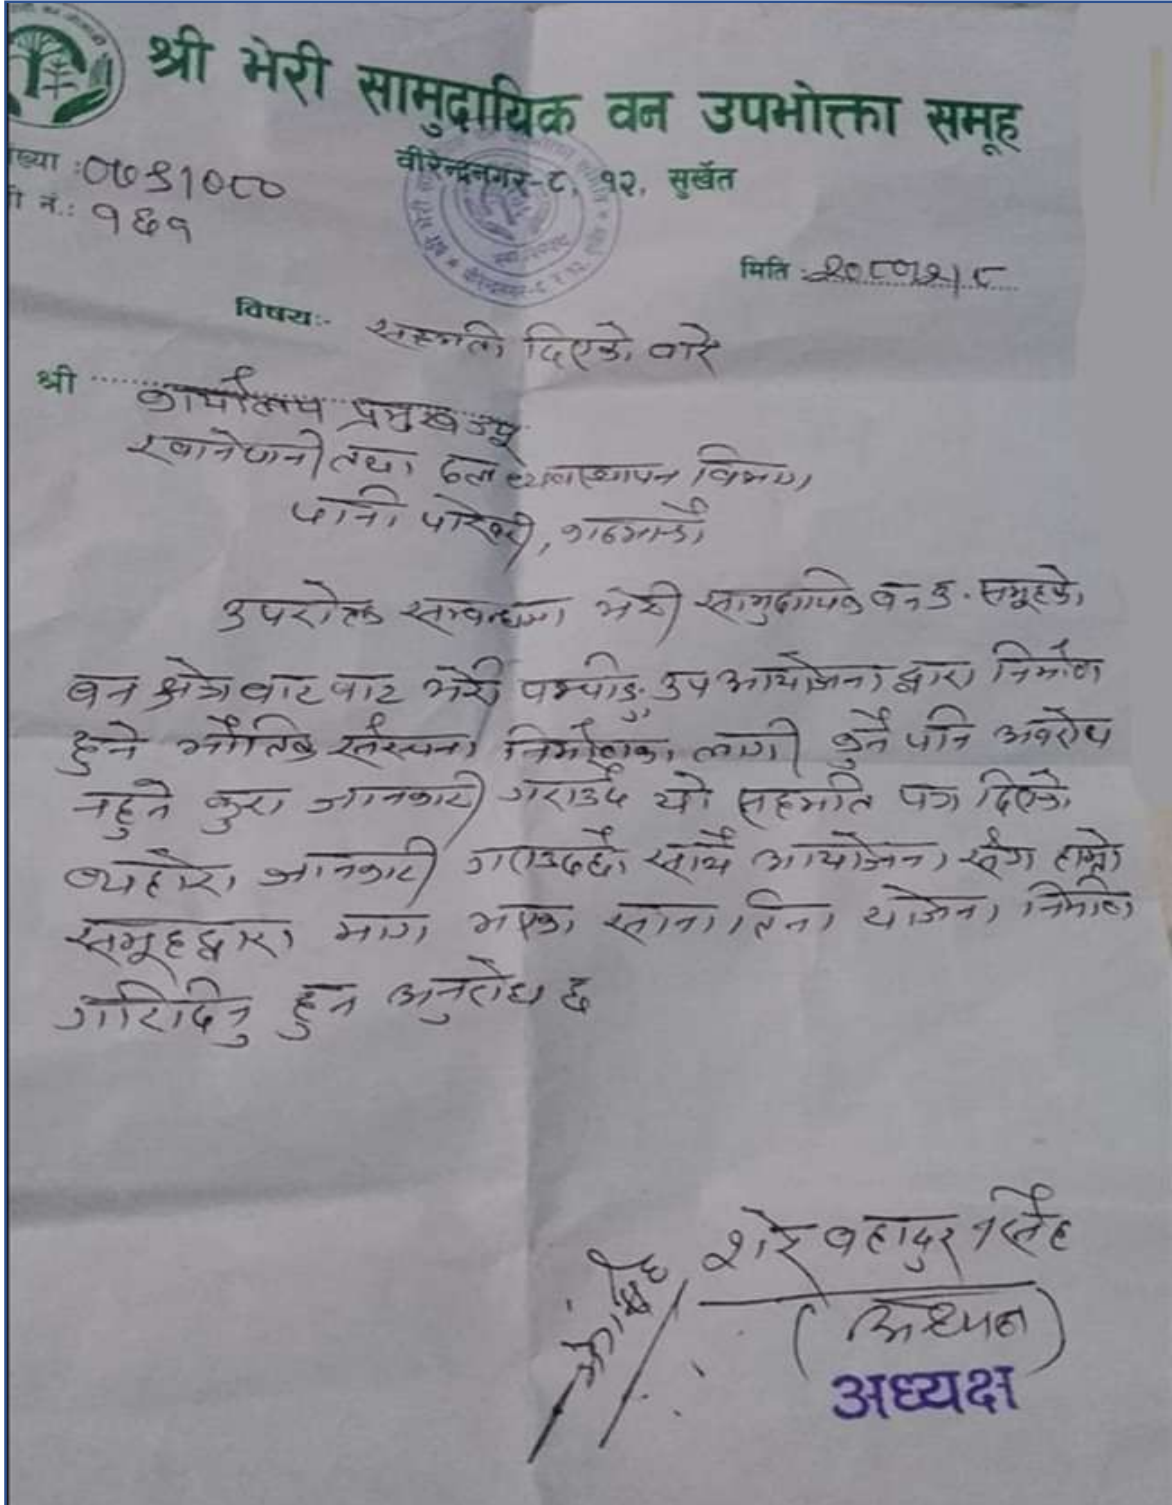 श्री भेरी सामुदायिक वन उपभोक्ता समूह
वीरेन्द्रनगर-८, १२, सुर्खेत
ख्या : ०७९१०८०
नी नं.: १६१
मिति :
विषयः- सहमती दिएको बारे
श्री कार्यालय प्रमुख ज्यू
खानेपानी तथा ढल व्यवस्थापन विभाग
पानी पोखरी, काठमाडौं
उपरोक्त सम्बन्धमा भेरी सामुदायिक वन उ. समूहको
वन क्षेत्र बाट बाट भेरी पम्पीङ्ग उप आयोजना द्वारा निर्माण
हुने भौतिक संरचना निर्माणका लागी कुनै पनि अवरोध
नहुने कुरा जानकारी गराउदै यो सहमति पत्र दिएको
व्यहोरा जानकारी गराउदछौ साथै आयोजना संग हाम्रो
समूहद्वारा माग भएका साना तिना योजना निर्माण
गरिदिनु हुन अनुरोध छ
शेर बहादुर सिंह
(अध्यक्ष)
अध्यक्ष